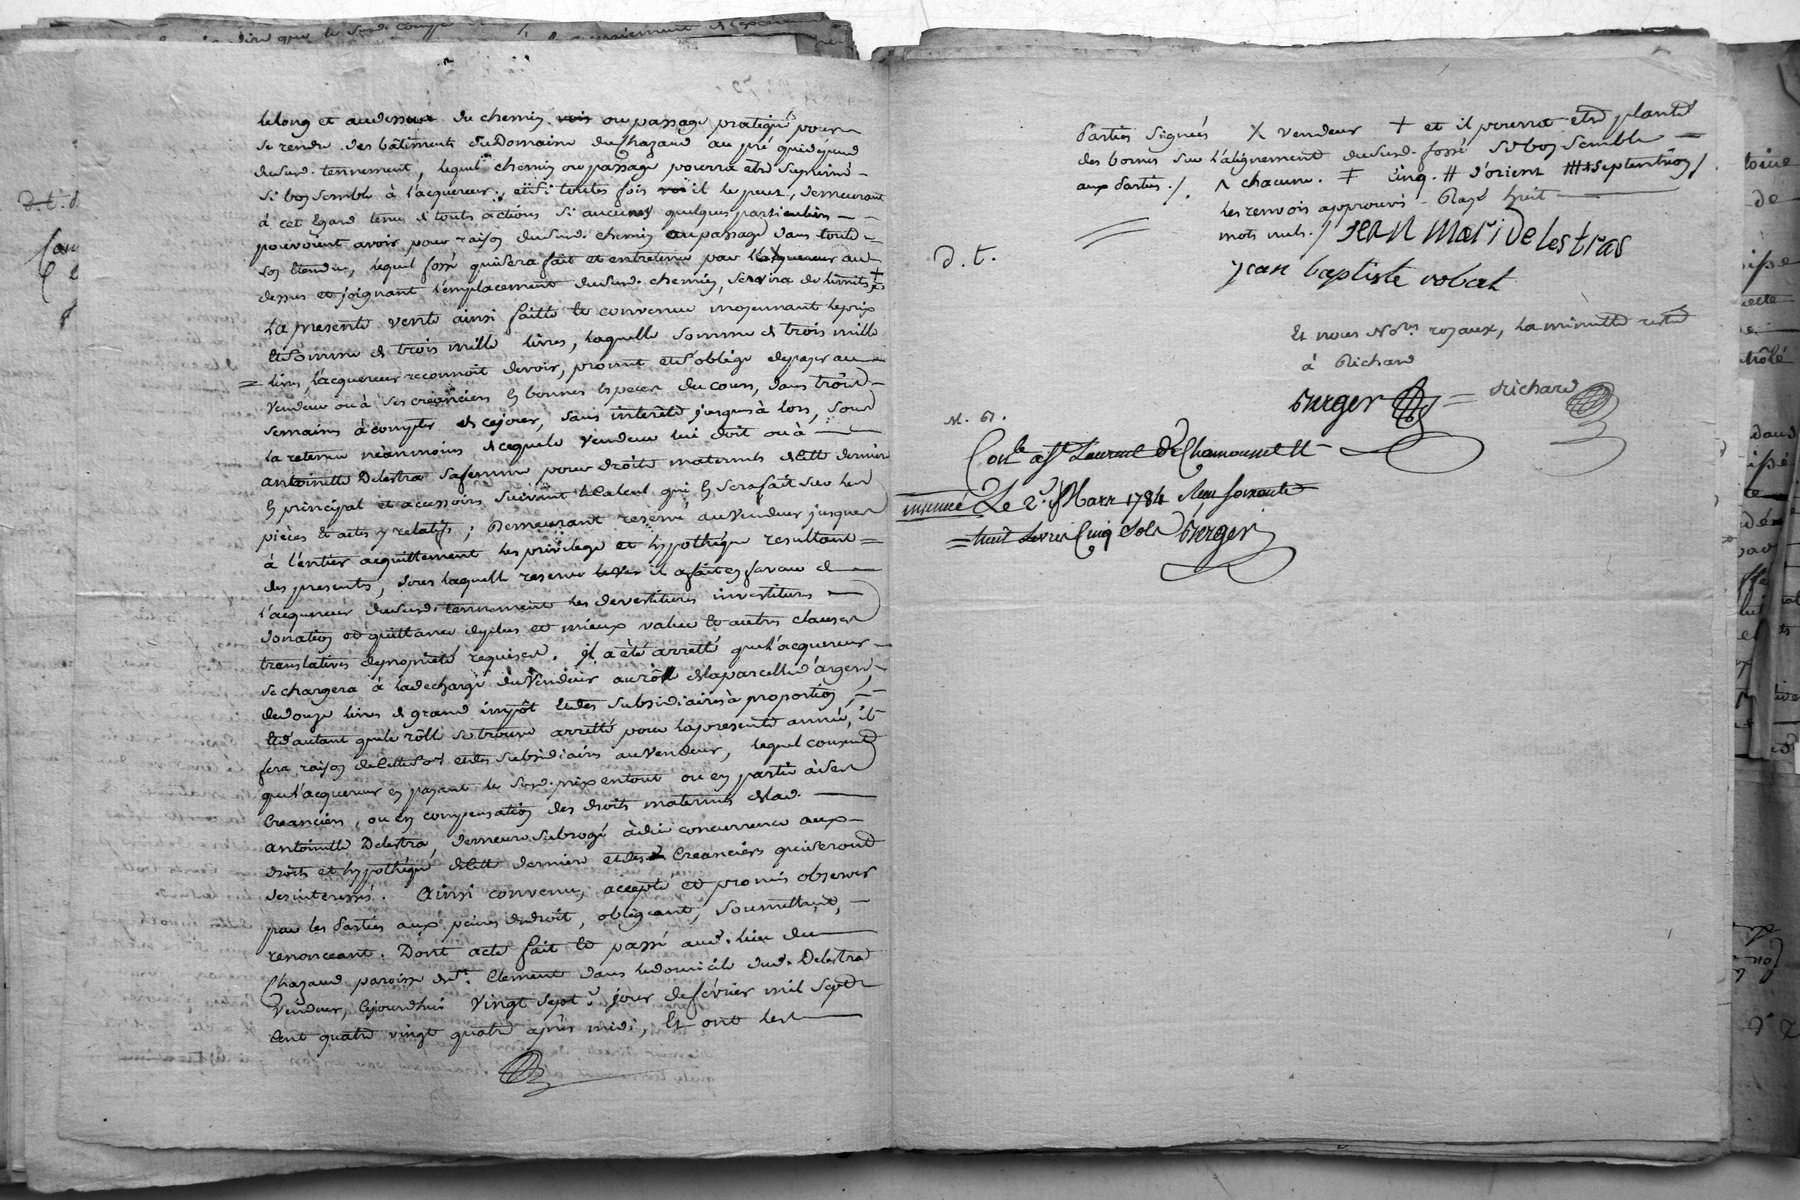 le long et au dessus du chemin ou passage pratiqué pour
se rendre des bâtiments du Domaine du Chazaud au pré qui depend
dususd. tennement, lequel chemin ou passage pourra etre suprimé
si bon semble à l'acquereur, et si toutes fois il le peut, demeurant
à cet Egard tenu de touts actions si aucunes quelques particuliers
pouvoient avoir pour raison dususd. chemin ou passage dans toute
son Etendue, lequel fossé qui sera fait et entretenu par l'acquereur au
dessus et joignant l'emplacement dususd. chemin, servira de limite +
La presente vente ainsi faitte et convenue moyennant le prix
et somme de trois mille livres, laquelle somme de trois mille
livres, l'acquereur reconnoit devoir, promet et s'oblige de payer au
Vendeur ou à ses creanciers en bonnes Especes du cours, dans trois
semaines à compter de ce jour, sans interêts jusques à lors, sous
la retenue néanmoins de ce que le Vendeur lui doit ou à
antoinette Delestra sa femme pour droits maternels de cette derniere
en principal et accessoirs suivant le calcul qui en sera fait sur les
pièces et actes y relatifs ; Demeurant reservé au Vendeur jusques
à l'entier acquittement les privilege et hypothéque resultant
des presentes, sous laquelle reserve il a fait en faveur de
l'acquereur dususd. tennement les devestitures investitures
donation et quittance de plus et mieux value et autres clauses
translatives de proprieté requises. Il a été arretté que l'acquereur
se chargera à la decharge du Vendeur au rôle de la parcelle d'argent,
de douze livres de grand impôt et des subsidiaires à proportion,
et d'autant que le rôle se trouve arretté pour la presente année, il
fera raison de cette cotte et des subsidiaires au Vendeur, lequel consent
que l'acquereur en payant le susd. prix en tout ou en partie à ses
Creanciers, ou en compensation des droits maternels de lad.
antoinette Delestra, demeure subrogé à düe concurrence aux
droits et hypothéque de cette derniere et des Creanciers qui seront
desinteressés. Ainsi convenu, accepté et promis observer
par les Parties aux peines de droit, obligeant, soumettant,
renonceant. Dont acte fait et passé aud. lieu du
Chazaud paroisse de St. Clement dans le domicile dud. Delestra
Vendeur, cejourdhui vingt sept.e jour de février mil sept
Cent quatre vingt quatre après midi, Et ont les
Parties Signés X vendeur + et il pourra etre planté
des bornes sur l'alignement dususd. fossé si bon semble
aux Parties ./. ^ chacune. ‡ cinq. # d'orient septentrion /
les renvois approuvés. Rayé huit
mots nuls. /. JEAN MARi DelestRas
D. t.
jean baptiste robat
Et nous No.res royaux, la minutte resté
à Richard
Berger = Richard
N. 61.
Con.lé à St Laurent de Chamousset
insinué Le 2.e Mars 1784 Reçu soixante
huit Livres Cinq Sols Berger
D. t.